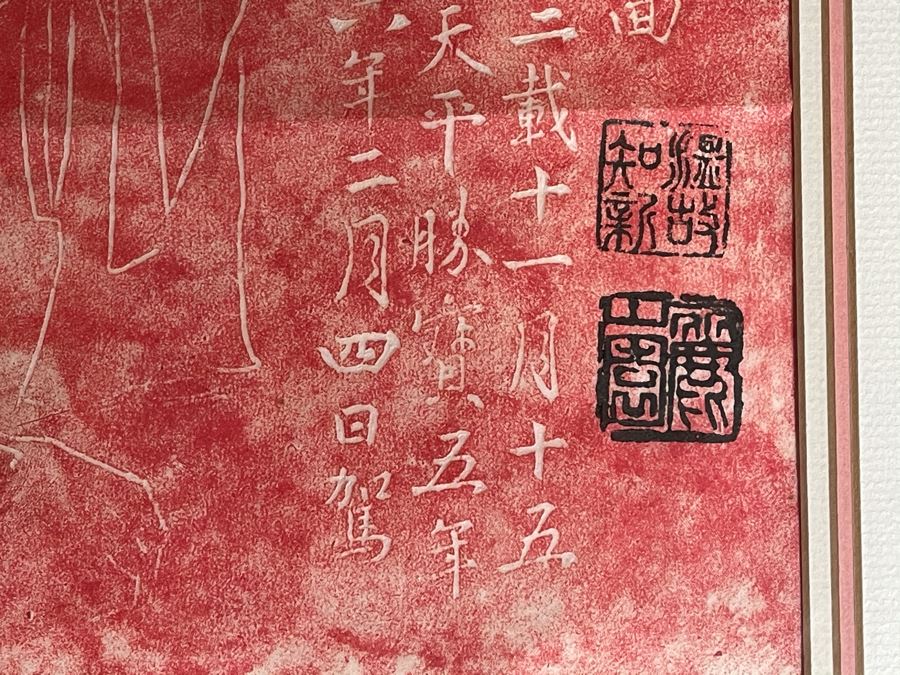 面
二載十一月十五
天平勝寶五年
六年二月四日駕
溫故
知新